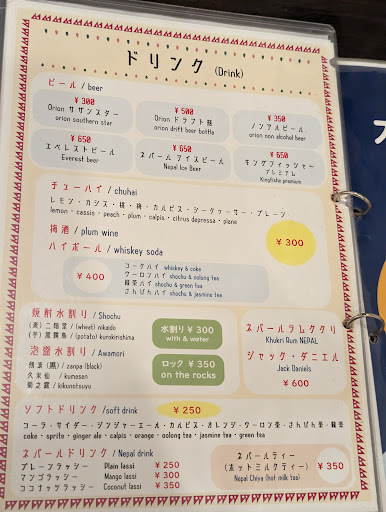 ドリンク (Drink)
ビール / beer
¥300
Orion サザンスター
orion southern star
¥500
Orion ドラフト瓶
orion drift beer bottle
¥350
ノンアルビール
orion non alcohol beer
¥650
エベレストビール
Everest beer
¥650
ネパールアイスビール
Nepal Ice Beer
¥650
キングフィッシャー
プレミアム
Kingfishe premium
チューハイ / chuhai
レモン・カシス・桃・梅・カルピス・シークヮーサー・プレーン
lemon・cassis・peach・plum・calpis・citrus depressa・plane
梅酒 / plum wine
¥300
ハイボール / whiskey soda
¥400
コークハイ whiskey & coke
ウーロンハイ shochu & oolong tea
緑茶ハイ shochu & green tea
さんぴん茶ハイ shochu & jasmine tea
焼酎水割り / Shochu
(麦) 二階堂 / (wheat) nikaido
(芋) 黒霧島 / (potato) kurokirishima
泡盛水割り / Awamori
残波 (黒) / zanpa (black)
久米仙 / kumesen
菊之露 / kikunotsuyu
水割り ¥300
with & water
ロック ¥350
on the rocks
ネパールラムククリ
Khukri Rum NEPAL
ジャック・ダニエル
Jack Daniels
¥600
ソフトドリンク / soft drink ¥250
コーラ・サイダー・ジンジャーエール・カルピス・オレンジ・ウーロン茶・さんぴん茶・緑茶
coke・sprite・ginger ale・calpis・orange・oolong tea・jasmine tea・green tea
ネパールドリンク / Nepal drink
プレーンラッシー Plain lassi ¥250
マンゴラッシー Mango lassi ¥300
ココナッツラッシー Coconut lassi ¥350
ネパールティー
(ホットミルクティー)
Nepal Chiya (hot milk tea)
¥350